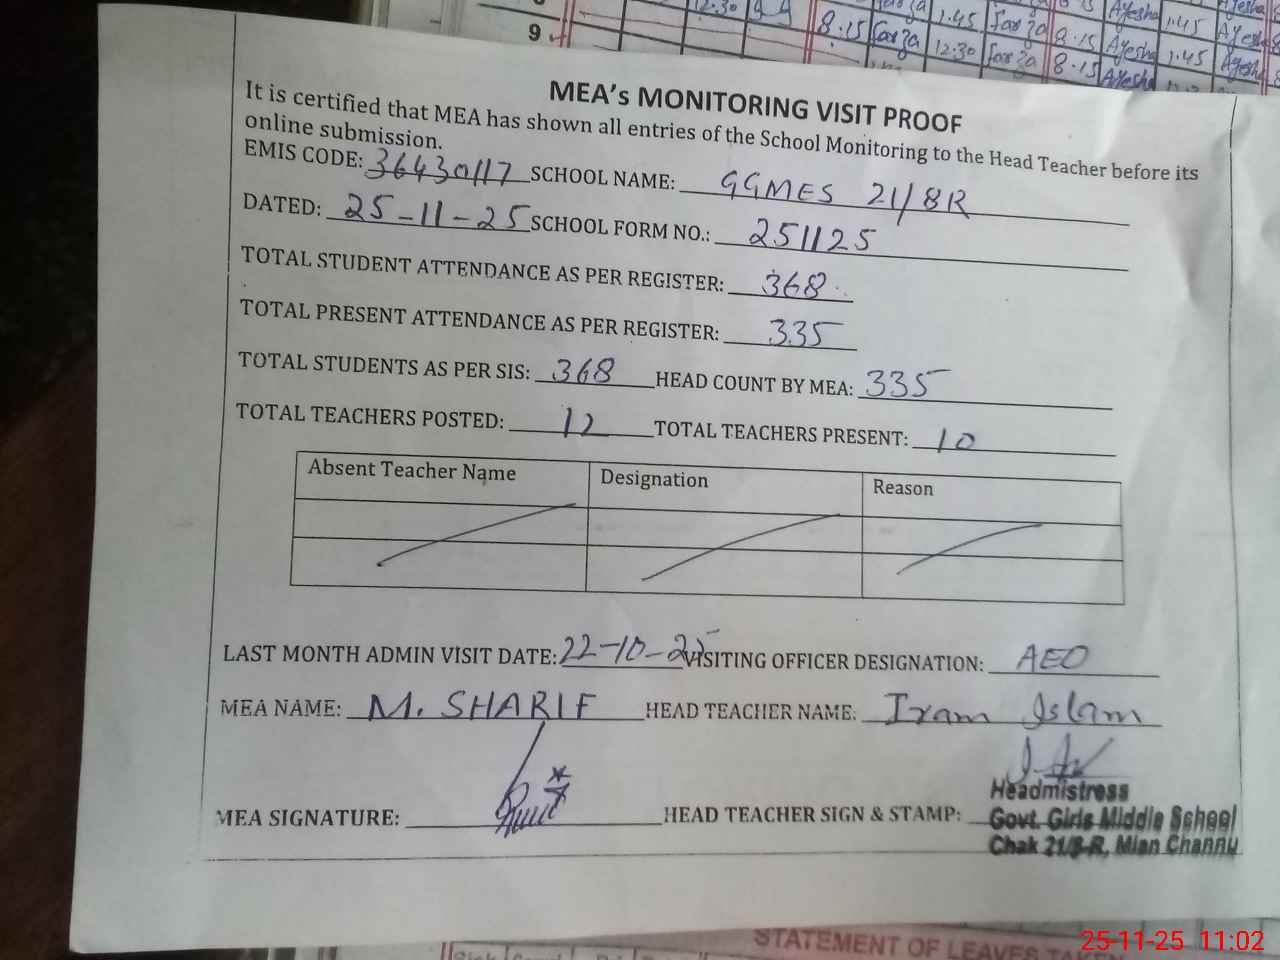 9
12.30
8.15 Farza 1.45 Farza 8.15 Ayesha 1.45 Ayesha
12.30 Farza 8.15 Ayesha
MEA's MONITORING VISIT PROOF
It is certified that MEA has shown all entries of the School Monitoring to the Head Teacher before its
online submission.
EMIS CODE: 36430117 SCHOOL NAME: GGMES 21/8R
DATED: 25-11-25 SCHOOL FORM NO.: 251125
TOTAL STUDENT ATTENDANCE AS PER REGISTER: 368
TOTAL PRESENT ATTENDANCE AS PER REGISTER: 335
TOTAL STUDENTS AS PER SIS: 368 HEAD COUNT BY MEA: 335
TOTAL TEACHERS POSTED: 12 TOTAL TEACHERS PRESENT: 10
Absent Teacher Name Designation Reason
LAST MONTH ADMIN VISIT DATE: 22-10-25 VISITING OFFICER DESIGNATION: AEO
MEA NAME: M. SHARIF HEAD TEACHER NAME: Iram Islam
MEA SIGNATURE: HEAD TEACHER SIGN & STAMP:
Headmistress
Govt. Girls Middle School
Chak 21/8-R, Mian Channu
STATEMENT OF LEAVES TAKEN
25-11-25 11:02